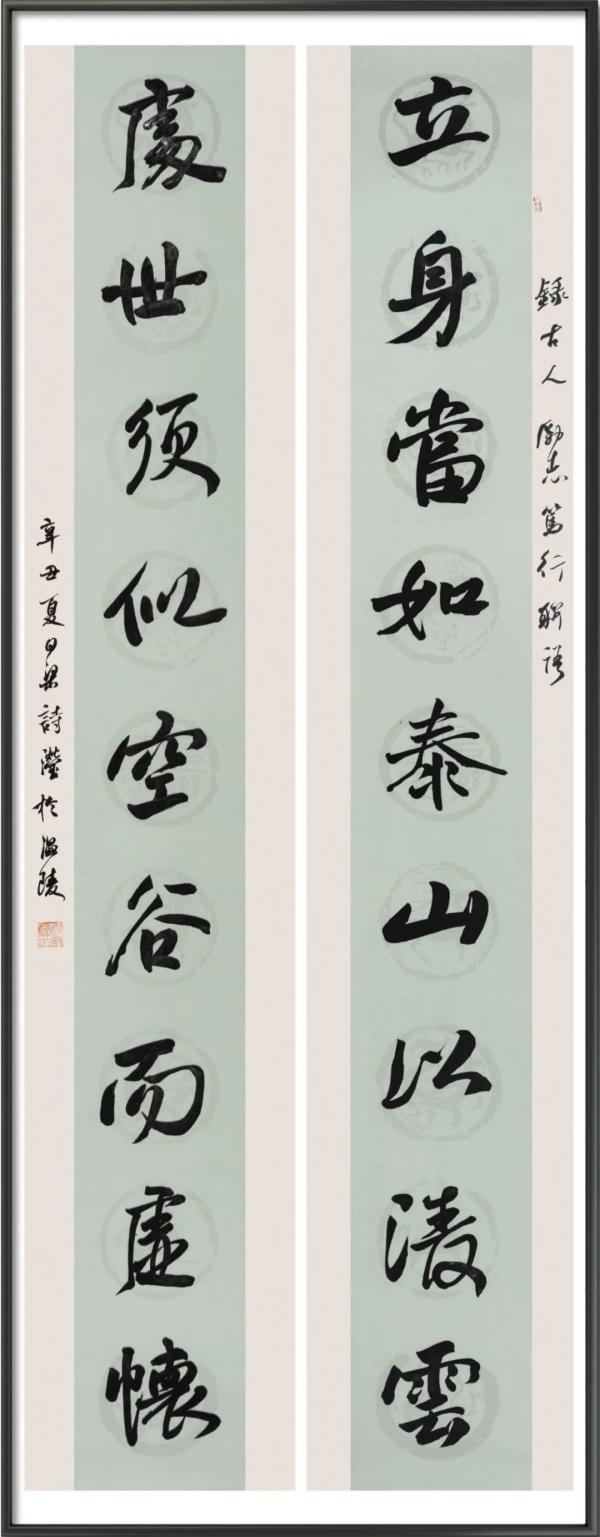 錄古人勵志篤行聯語
立身當如泰山以淩雲
處世須似空谷而虛懷
辛丑夏日梁詩瀅於溫陵